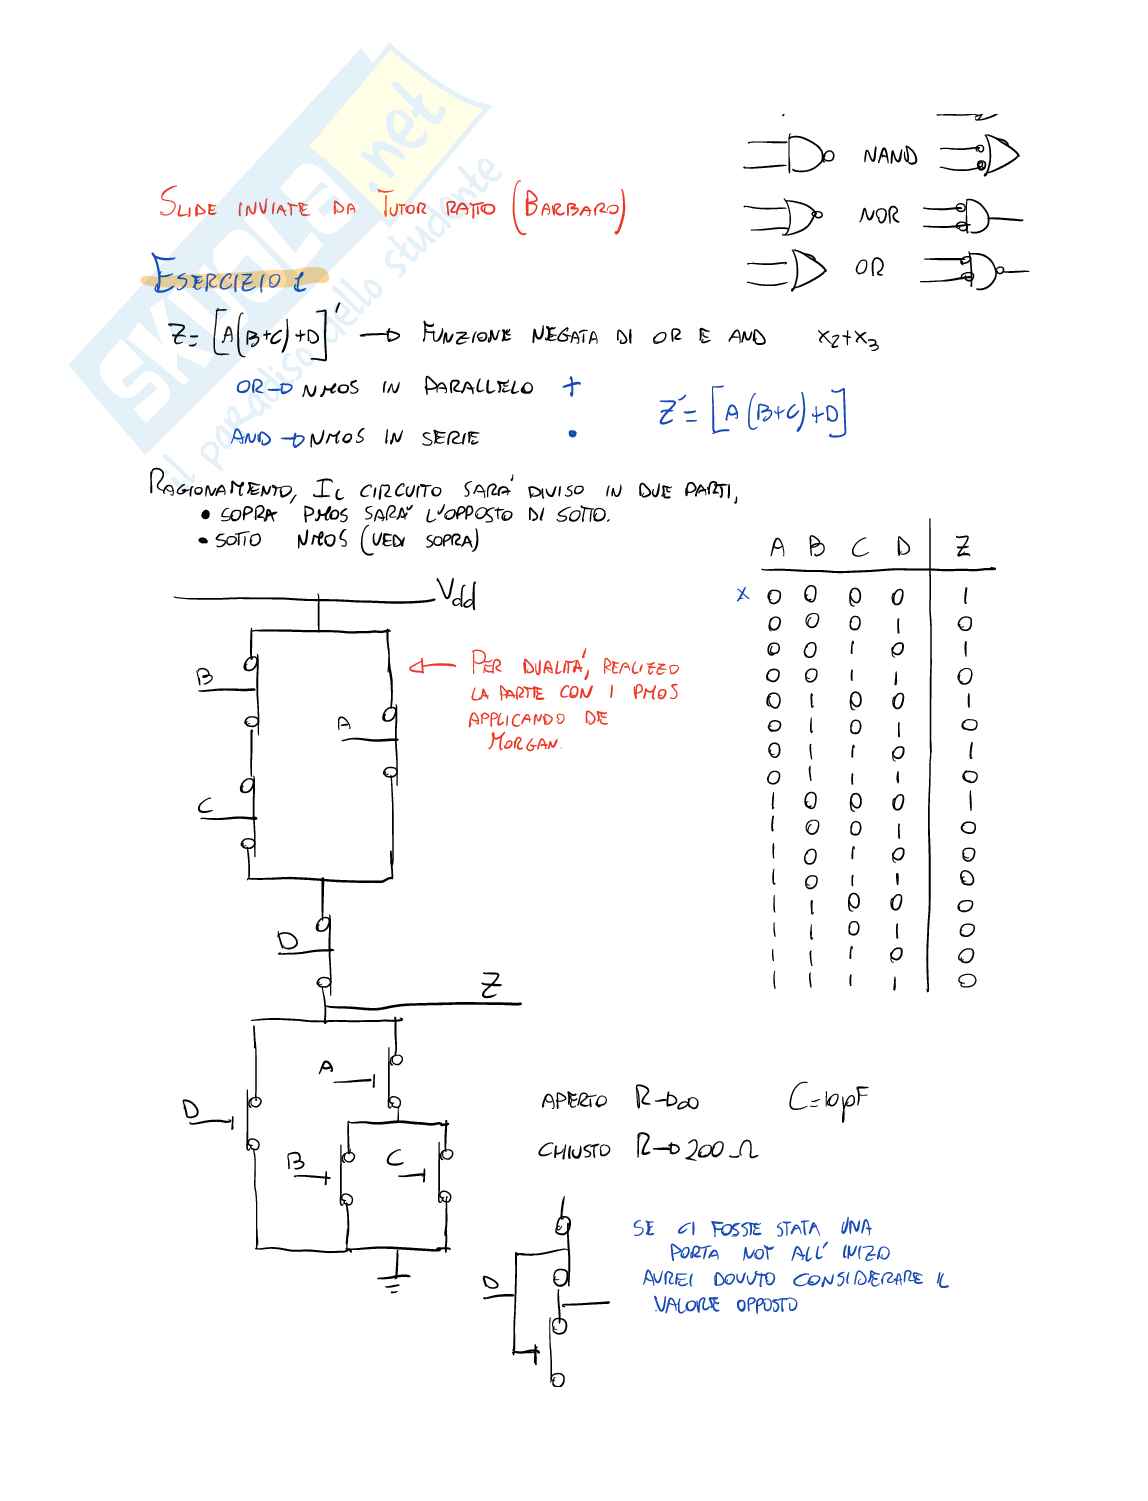 SKUOLA.net
il paradiso dello studente
NAND
NOR
OR
SLIDE INVIATE DA TUTOR RATTO (BARBARO)
ESERCIZIO 1
Z = [A(B+C)+D]' → FUNZIONE NEGATA DI OR E AND x₂+x₃
OR → NMOS IN PARALLELO +
AND → NMOS IN SERIE •
Z' = [A(B+C)+D]
RAGIONAMENTO, IL CIRCUITO SARA' DIVISO IN DUE PARTI,
• SOPRA PMOS SARA' L'OPPOSTO DI SOTTO.
• SOTTO NMOS (VEDI SOPRA)
A B C D Z
x 0 0 0 0 1
0 0 0 1 0
0 0 1 0 1
0 0 1 1 0
0 1 0 0 1
0 1 0 1 0
0 1 1 0 1
0 1 1 1 0
1 0 0 0 1
1 0 0 1 0
1 0 1 0 0
1 0 1 1 0
1 1 0 0 0
1 1 0 1 0
1 1 1 0 0
1 1 1 1 0
Vdd
B
A
C
D
Z
← PER DUALITA', REALIZZO
LA PARTE CON I PMOS
APPLICANDO DE
MORGAN.
A
D
B
C
APERTO R→∞ C=10pF
CHIUSTO R→200 Ω
D
SE CI FOSSE STATA UNA
PORTA NOT ALL' INIZO
AVREI DOVUTO CONSIDERARE IL
VALORE OPPOSTO